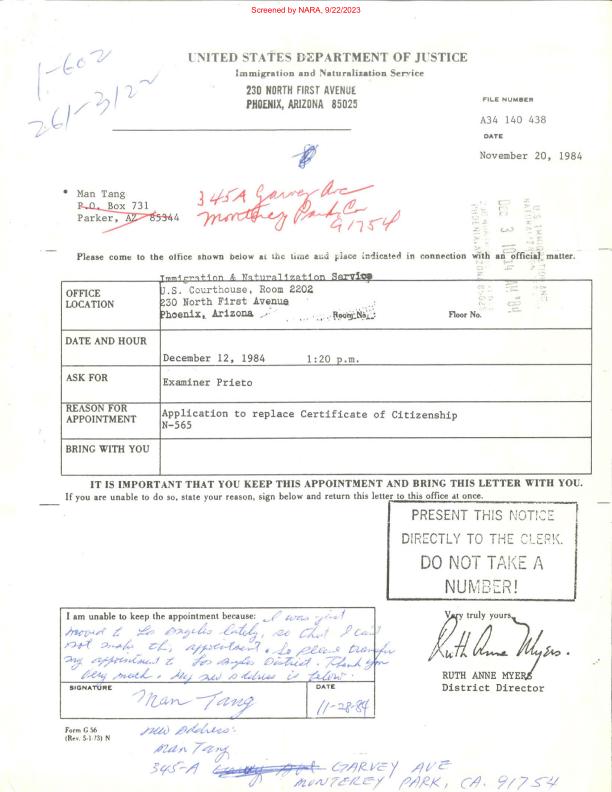 Screened by NARA, 9/22/2023
1-602
261-3122
UNITED STATES DEPARTMENT OF JUSTICE
Immigration and Naturalization Service
230 NORTH FIRST AVENUE
PHOENIX, ARIZONA 85025
FILE NUMBER
A34 140 438
DATE
November 20, 1984
Man Tang
P.O. Box 731
Parker, AZ 85344
345A Garvey Ave
Monterey Park, Ca
91754
DEC 3 10 14 AM '84
Please come to the office shown below at the time and place indicated in connection with an official matter.
OFFICE LOCATION
Immigration & Naturalization Service
U.S. Courthouse, Room 2202
230 North First Avenue
Phoenix, Arizona Room No. Floor No.
DATE AND HOUR
December 12, 1984 1:20 p.m.
ASK FOR
Examiner Prieto
REASON FOR APPOINTMENT
Application to replace Certificate of Citizenship
N-565
BRING WITH YOU
IT IS IMPORTANT THAT YOU KEEP THIS APPOINTMENT AND BRING THIS LETTER WITH YOU.
If you are unable to do so, state your reason, sign below and return this letter to this office at once.
PRESENT THIS NOTICE
DIRECTLY TO THE CLERK.
DO NOT TAKE A
NUMBER!
I am unable to keep the appointment because: I was just
moved to Los Angeles lately, so that I can
not make this appointment. So please transfer
my appointment to Los Angeles District. Thank you
very much. My new address is below.
SIGNATURE
Man Tang
DATE
11-28-84
Very truly yours,
Ruth Anne Myers.
RUTH ANNE MYERS
District Director
Form G-56
(Rev. 5-1-73) N
new address:
Man Tang
345-A GARVEY AVE
MONTEREY PARK, CA. 91754